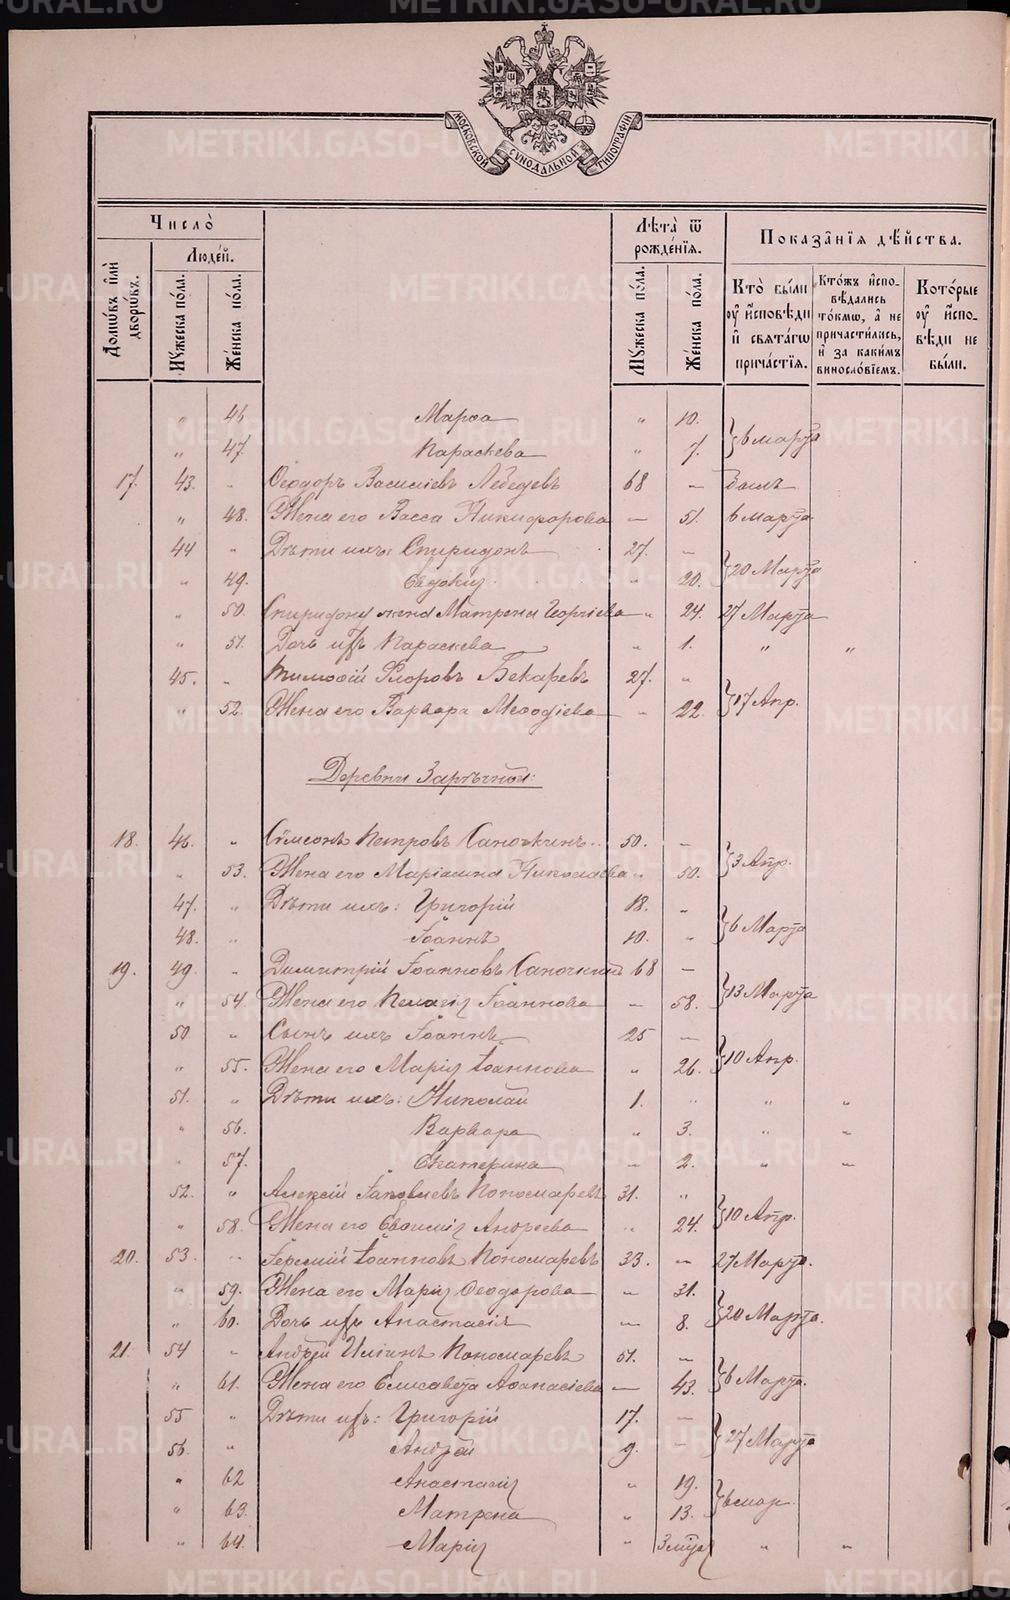 МОСКОВСКОЙ СУНОДАЛЬНОЙ ТИПОГРАФІИ
Число̀
Лѣта̀ ѿ рожде́нїѧ.
Показа̑нїѧ дѣ́йства.
Люде́й.
Домѡ́въ и҆лѝ дворѡ́въ.
Мꙋ́жеска по́ла.
Же́нска по́ла.
Мꙋ́жеска по́ла.
Же́нска по́ла.
Кто̀ бы́ли оу҆ и҆сповѣ́ди и҆ свѧта́гѡ причⷭ҇а́стїѧ.
Кто́жъ и҆спо-вѣ́дались то́кмѡ, а҆ не причасти́лись, и҆ за каки́мъ винослові́емъ.
Кото́рые оу҆ и҆спо-вѣ́ди не бы́ли.
„ 46 Марѳа „ 10. } 6 марта
„ 47. Параскева „ 7.
17. 43. „ Ѳеодоръ Василіевъ Лебедевъ 68 — Былъ
„ 48. Жена его Васса Никифорова — 51. 6 Марта
44 „ Дѣти ихъ: Спиридонъ 27. — } 20 Марта
„ 49. Евдокія „ 20.
„ 50. Спиридона жена Матрена Георгіева „ 24. 27 Марта
„ 51. Дочь ихъ Параскева „ 1. „ „
45. „ Тимоѳій Флоровъ Бекаревъ 27. „ } 17 Апр.
„ 52. Жена его Варвара Меѳодіева „ 22.
Деревни Зарѣчной:
18. 46. „ Сѵмеонъ Петровъ Саночкинъ 50. — } 3 Апр.
„ 53. Жена его Маріамна Николаева „ 50.
47. „ Дѣти ихъ: Григорій 18. „ } 6 Марта
48. „ Іоаннъ 10. „
19. 49. „ Димитрій Іоанновъ Саночкинъ 68 — } 13 Марта
„ 54. Жена его Пелагія Іоаннова — 58.
50 „ Сынъ ихъ Іоаннъ 25 — } 10 Апр.
„ 55. Жена его Марія Іоаннова „ 26.
51. „ Дѣти ихъ: Николай 1. „ „ „
„ 56. Варвара „ 3. „ „
„ 57. Екатерина „ 2. „ „
52. „ Алексій Іаковлевъ Пономаревъ 31. „ } 10 Апр.
„ 58. Жена его Евѳимія Андреева „ 24.
20. 53. „ Іеремій Іоанновъ Пономаревъ 33. — 27 Марта.
„ 59. Жена его Марія Ѳеодорова — 31. } 20 Марта.
„ 60. Дочь ихъ Анастасія — 8.
21 54 „ Андрей Иліинъ Пономаревъ 51. — } 6 Марта.
„ 61. Жена его Елисавета Аѳанасіева — 43.
55 „ Дѣти ихъ: Григорій 17. — } 27 Марта
56. „ Андрей 9. —
„ 62 Анастасія „ 19. } 6 мар.
„ 63. Матрена „ 13.
„ 64. Марія „ 3 мѣся „ „
METRIKI.GASO-URAL.RU